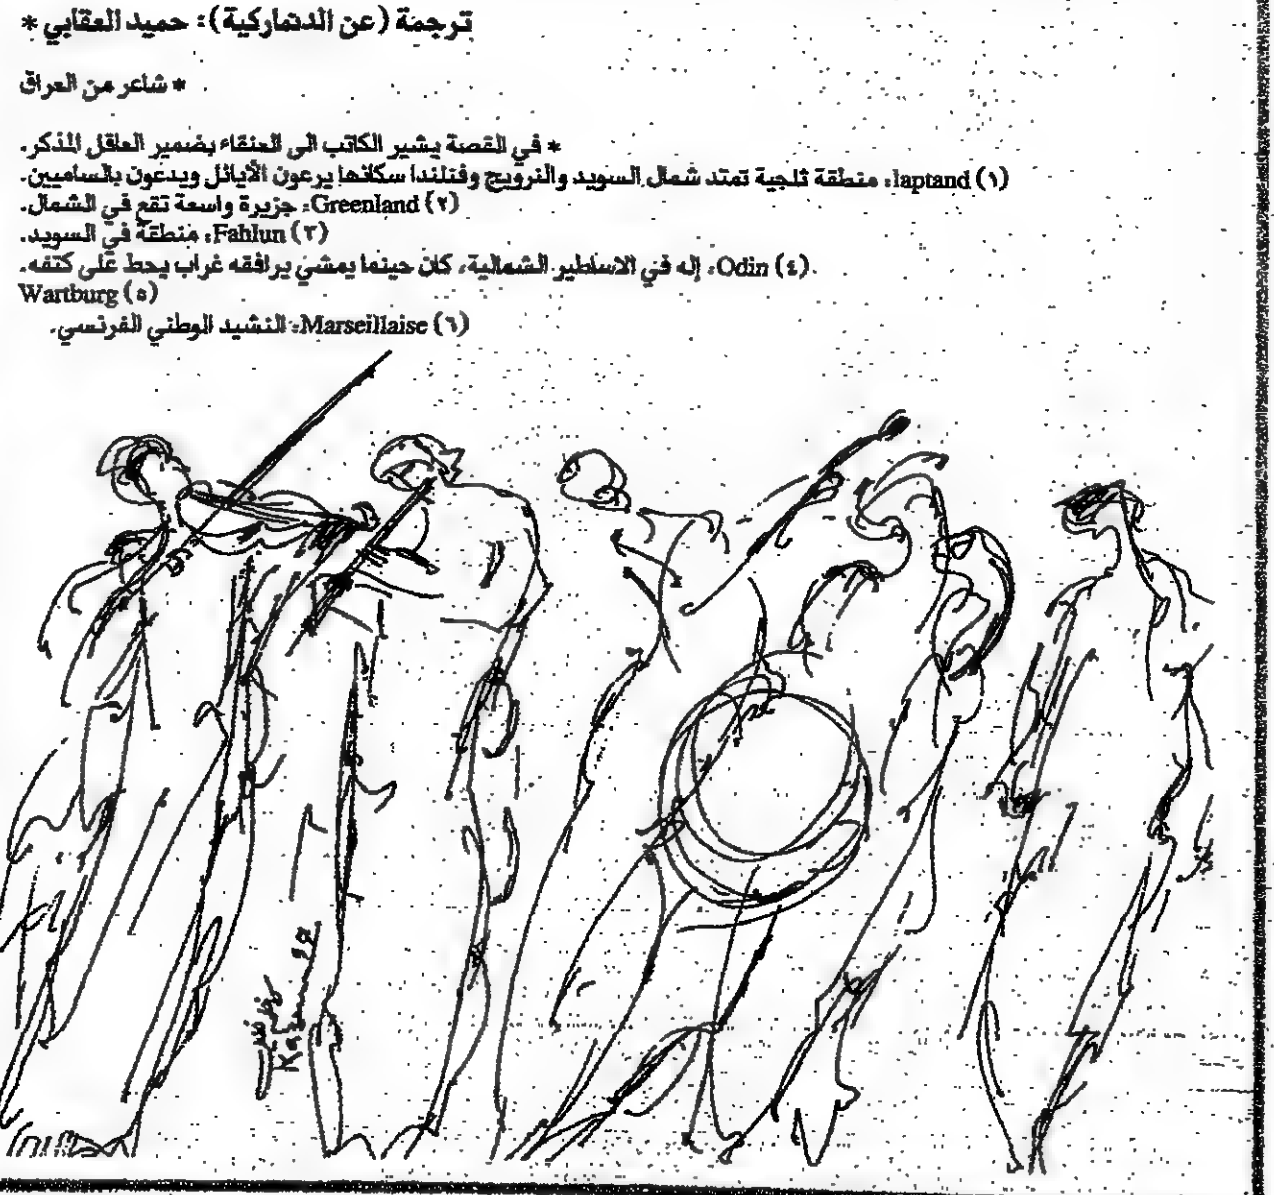 ترجمة (عن الدنماركية): حميد العقابي *
* شاعر من العراق
* في القصة يشير الكاتب الى العنقاء بضمير العاقل المذكر.
(١) laptand: منطقة ثلجية تمتد شمال السويد والنرويج وفنلندا سكانها يرعون الأيائل ويدعون بالساميين.
(٢) Greenland: جزيرة واسعة تقع في الشمال.
(٣) Fahlun: منطقة في السويد.
(٤) Odin: إله في الاساطير الشمالية، كان حينما يمشي يرافقه غراب يحط على كتفه.
(٥) Wartburg
(٦) Marseillaise: النشيد الوطني الفرنسي.